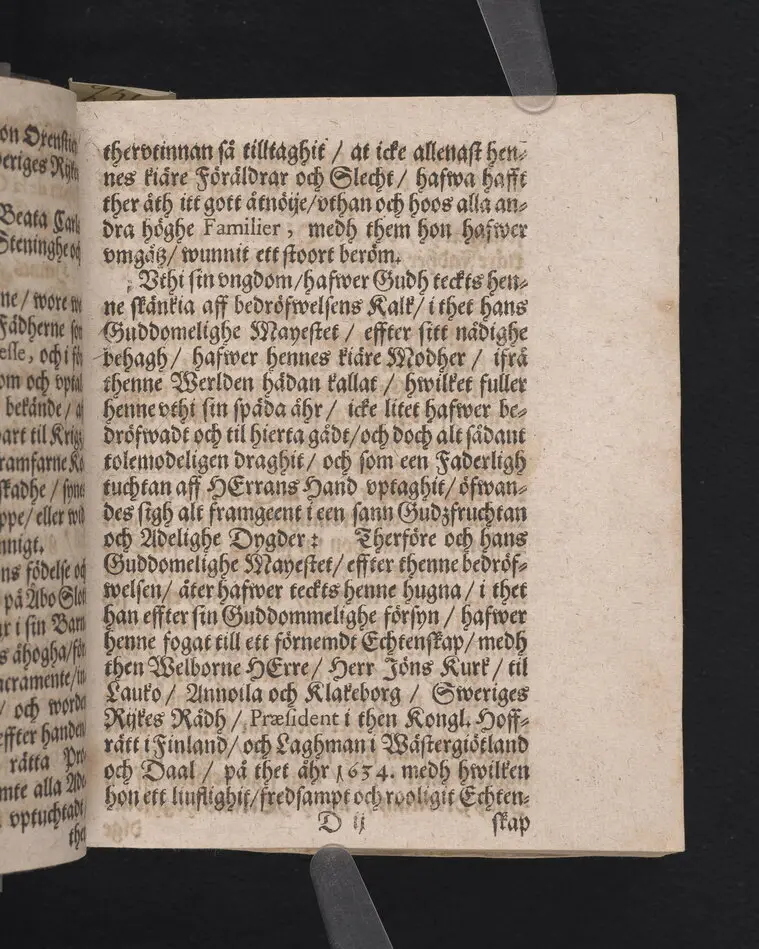 on Oxensti
eriges Rijk
Beata Carl
Steninghe oc
ne / wore
Fädherne
esse, och i
om och vptal
bekände / a
art til Krigz
ramfarne
skadhe / syn
ppe / eller
nnigt.
ns födelse oc
på Åbo Slo
r i sin Barn
s åhogha / för
acramente /
/ och worde
effter handen
rätta
mte alla
vptuchtad
the
thervtinnan så tilltaghit / at icke allenast hen-
nes kiäre Föräldrar och Slecht / hafwa hafft
ther åth itt gott åtnöije / vthan och hoos alla an-
dra höghe Familier, medh them hon hafwer
vmgåtz / wunnit ett stoort beröm.
Vthi sin vngdom / hafwer Gudh teckts hen-
ne skänkia aff bedröfwelsens Kalk / i thet hans
Guddomelighe Mayestet / effter sitt nådighe
behagh / hafwer hennes kiäre Modher / ifrå
thenne Werlden hädan kallat / hwilket fuller
henne vthi sin späda åhr / icke litet hafwer be-
dröfwadt och til hierta gådt / och doch alt sådant
tolemodeligen draghit / och som een Faderligh
tuchtan aff HErrans Hand vptaghit / öfwan-
des sigh alt framgeent i een sann Gudzfruchtan
och Adelighe Dygder: Therföre och hans
Guddomelighe Mayestet / effter thenne bedröf-
welsen / åter hafwer teckts henne hugna / i thet
han effter sin Guddommelighe försyn / hafwer
henne fogat till ett förnemdt Echtenskap / medh
then Welborne HErre / Herr Jöns Kurk / til
Lauko / Annoila och Klakeborg / Sweriges
Rijkes Rådh / Præsident i then Kongl. Hoff-
rätt i Finland / och Laghman i Wästergiötland
och Daal / på thet åhr 1634. medh hwilken
hon ett liufligbit / fredsampt och rooligit Echten-
D ij skap